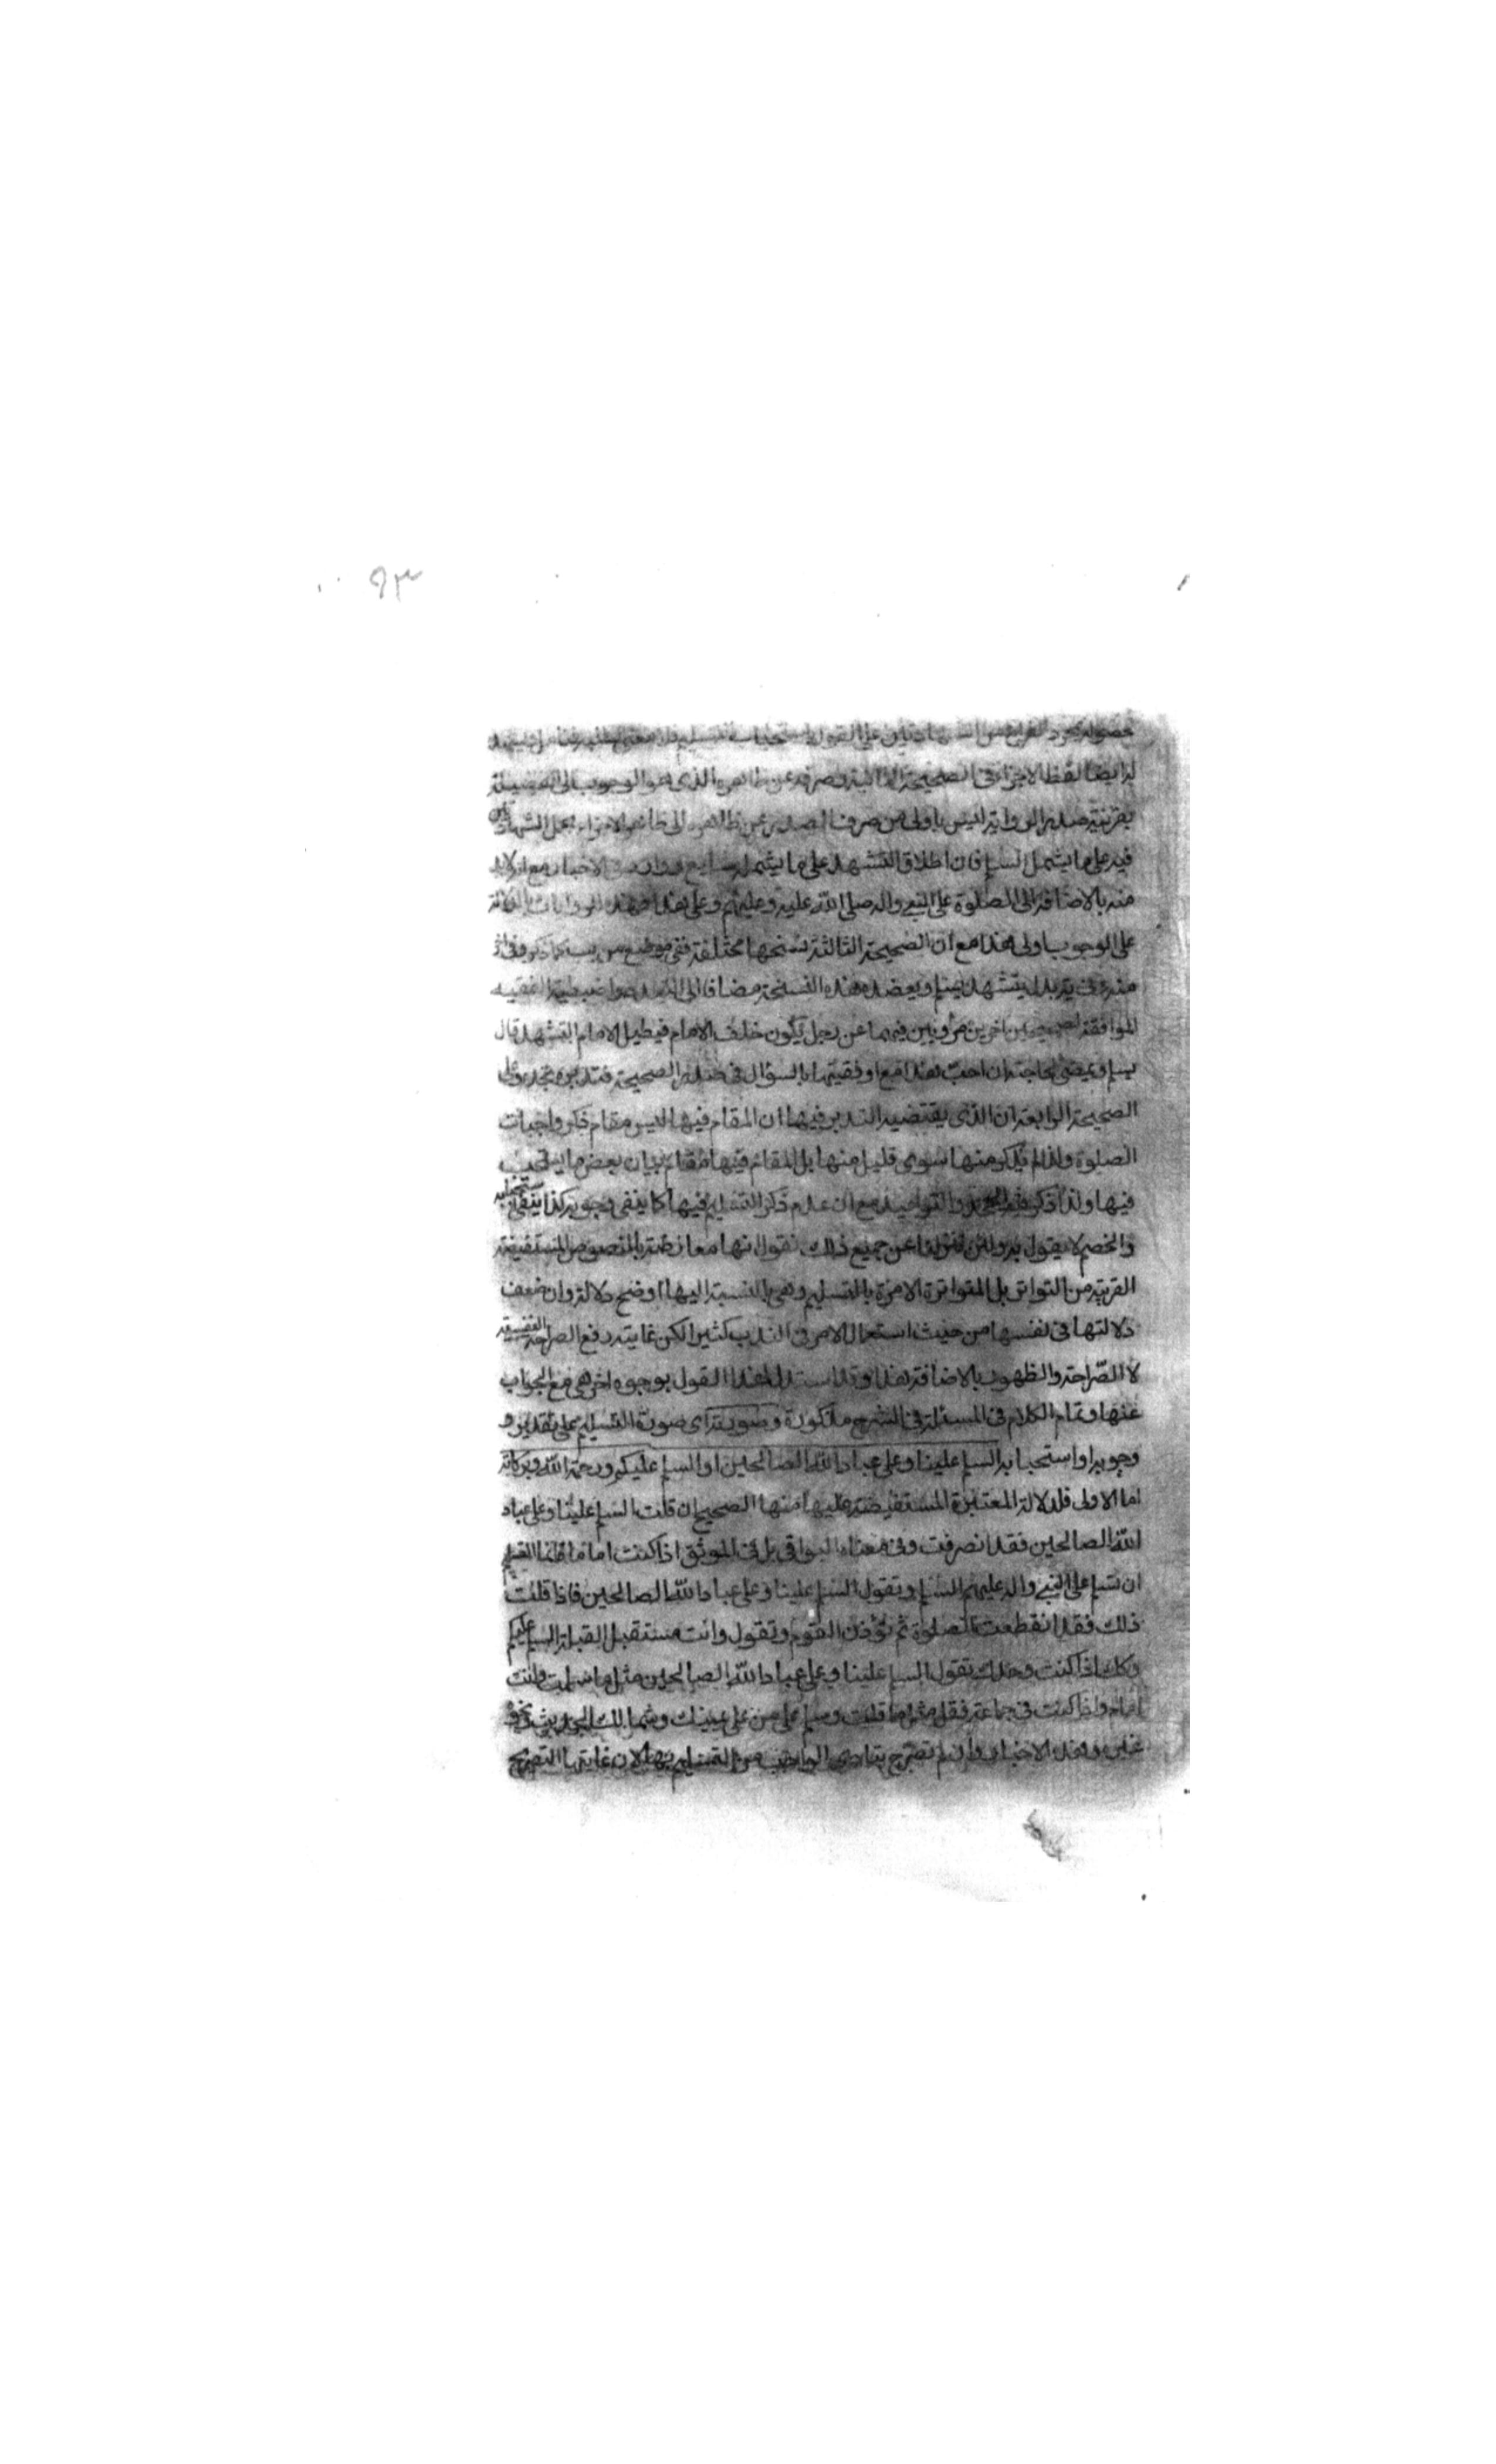 ٩٣
حصوله بمجرد الفراغ من الشهادتين على القول باستحباب التسليم
ايضا لفظ الاجزاء فى الصحيحة الثانية وصرفه عن ظاهره الذى هو الوجوب الى الفضيلة
بقرينة صدر الرواية ليس باولى من صرف الصدر عن ظاهره الى ظاهر الاجزاء بحمل الشهادتين
فيه على ما يشمل السلم فان اطلاق التشهد على ما يشمله شايع الاخبار مع انه لابد
منه بالاضافة الى الصلوة على النبى واله صلى الله عليه وعليهم وعلى هذا فهذه الروايات الثلاثة
على الوجوب اولى هذا مع ان الصحيحة الثالثة نسختها مختلفة ففى موضع من يب كما ذكر وفى اخر
منه وفى يه بدل يتشهد يسلم ويعضد هذه النسخة مضافا الى اضبطية الفقيه
الموافقة لصحيحين اخرين مرويين فيهما عن رجل يكون خلف الامام فيطيل الامام التشهد قال
يسلم ويمضى لحاجته ان احب هذا مع اوفقيتها بالسؤال فى صدر الصحيحة فتدبره تجده وفى
الصحيحة الرابعة ان الذى يقتضيه التدبر فيها ان المقام فيها ليس مقام ذكر واجبات
الصلوة ولذا لم يذكر منها سوى قليل منها بل المقام فيها مقام بيان بعض ما يستحب
فيها ولذا ذكر فيه والتواحيد مع ان عدم ذكر التسليم فيها كما ينفى وجوبه كذا ينفى استحبابه
والخصم لا يقول به ولئن تنزلنا عن جميع ذلك نقول انها معارضة بالنصوص المستفيضة
القريبة من التواتر بل المتواترة الامرة بالتسليم وهى بالنسبة اليها اوضح دلالة وان ضعف
دلالتها فى نفسها من حيث استعمال الامر فى الندب كثيرا لكن غايته دفع الصراحة
لا الصراحة والظهور بالاضافة هذا وقد استدل لهذا القول بوجوه اخر هى مع الجواب
عنها وتمام الكلام فى المسئلة فى الشرح مذكورة وصورته اى صورة التسليم على تقدير
وجوبه او استحبابه السلم علينا وعلى عباد الله الصالحين او السلم عليكم ورحمة الله وبركاته
اما الاولى فلدلالة المعتبرة المستفيضة عليها منها الصحيح ان قلت السلم علينا وعلى عباد
الله الصالحين فقد انصرفت وفى معناه البواقى بل فى الموثق اذا كنت اماما فانما التسليم
ان تسلم على النبى واله عليهم السلم وتقول السلم علينا وعلى عباد الله الصالحين فاذا قلت
ذلك فقد انقطعت الصلوة ثم تؤذن القوم وتقول وانت مستقبل القبلة السلم عليكم
وكك اذا كنت وحدك تقول السلم علينا وعلى عباد الله الصالحين مثل ما سلمت وانت
امام واذا كنت فى جماعة فقل مثل ما قلت وسلم على من على يمينك وشمالك الحديث ونحوه
غيره وهذه الاخبار وان لم تصرح بتادى الواجب من التسليم بها لان غايتها التصريح